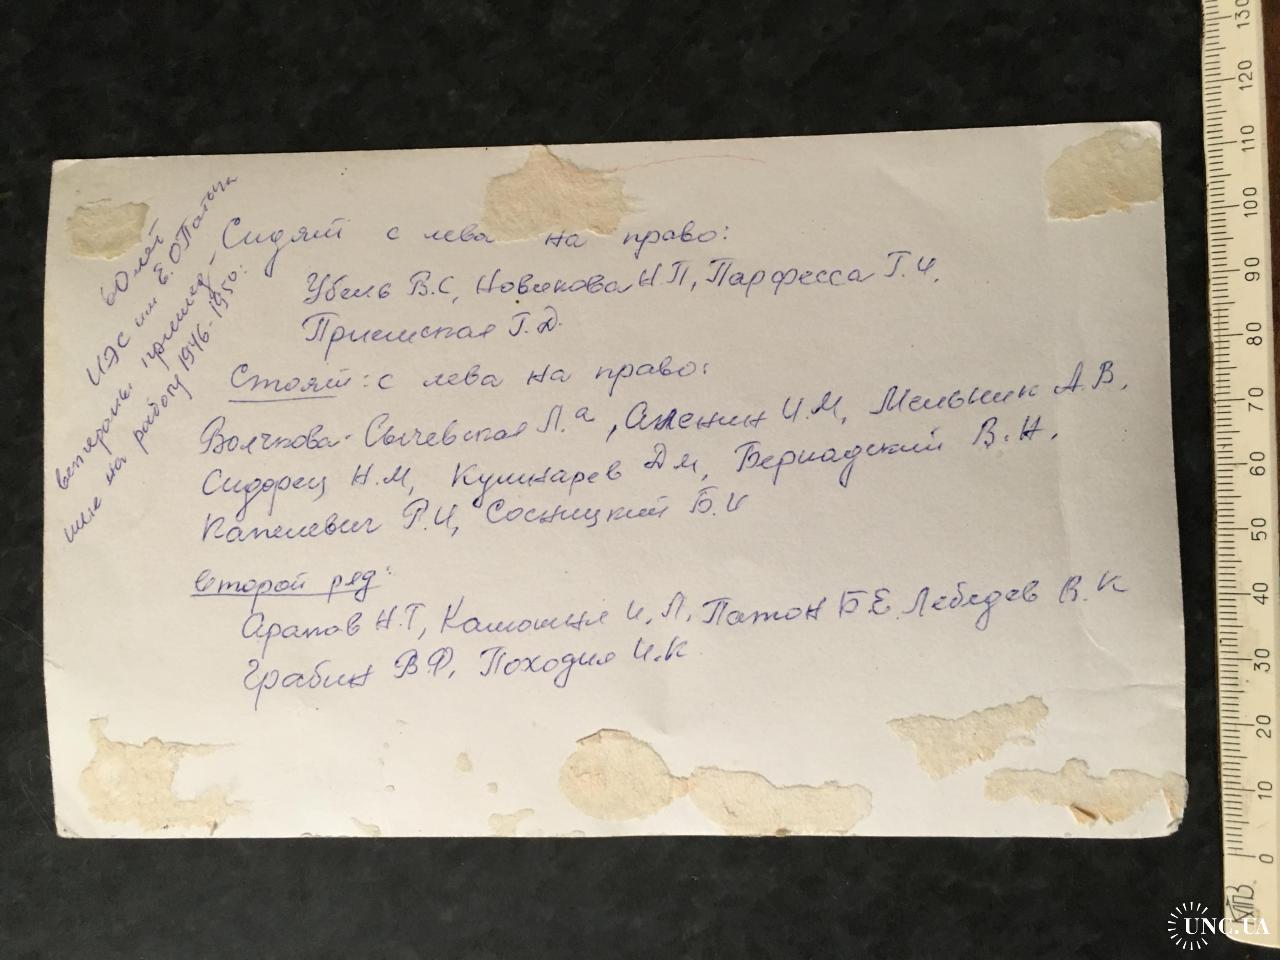 60 лет
ИЭС им Е.О Патона
ветераны пришед-
шие на работу 1946-1950:
Сидят с лева на право:
Убель В.С, Новикова Н П, Парфесса Г. И,
Приемская Г. Д.
Стоят: с лева на право:
Волчкова-Сычевская Л. а, И.М, Мельник А. В,
Сидорец Н. М, Кушнарев Д м, Бернадский В. Н,
Капелевич Р.И, Сосницкий Б. И
второй ряд:
Арапов Н.Т, И, Л, Патон Б Е, Лебедев В. К
Грабин В Ф, Походня И.К
130
120
110
100
90
80
70
60
50
40
30
20
10
0
UNC.UA